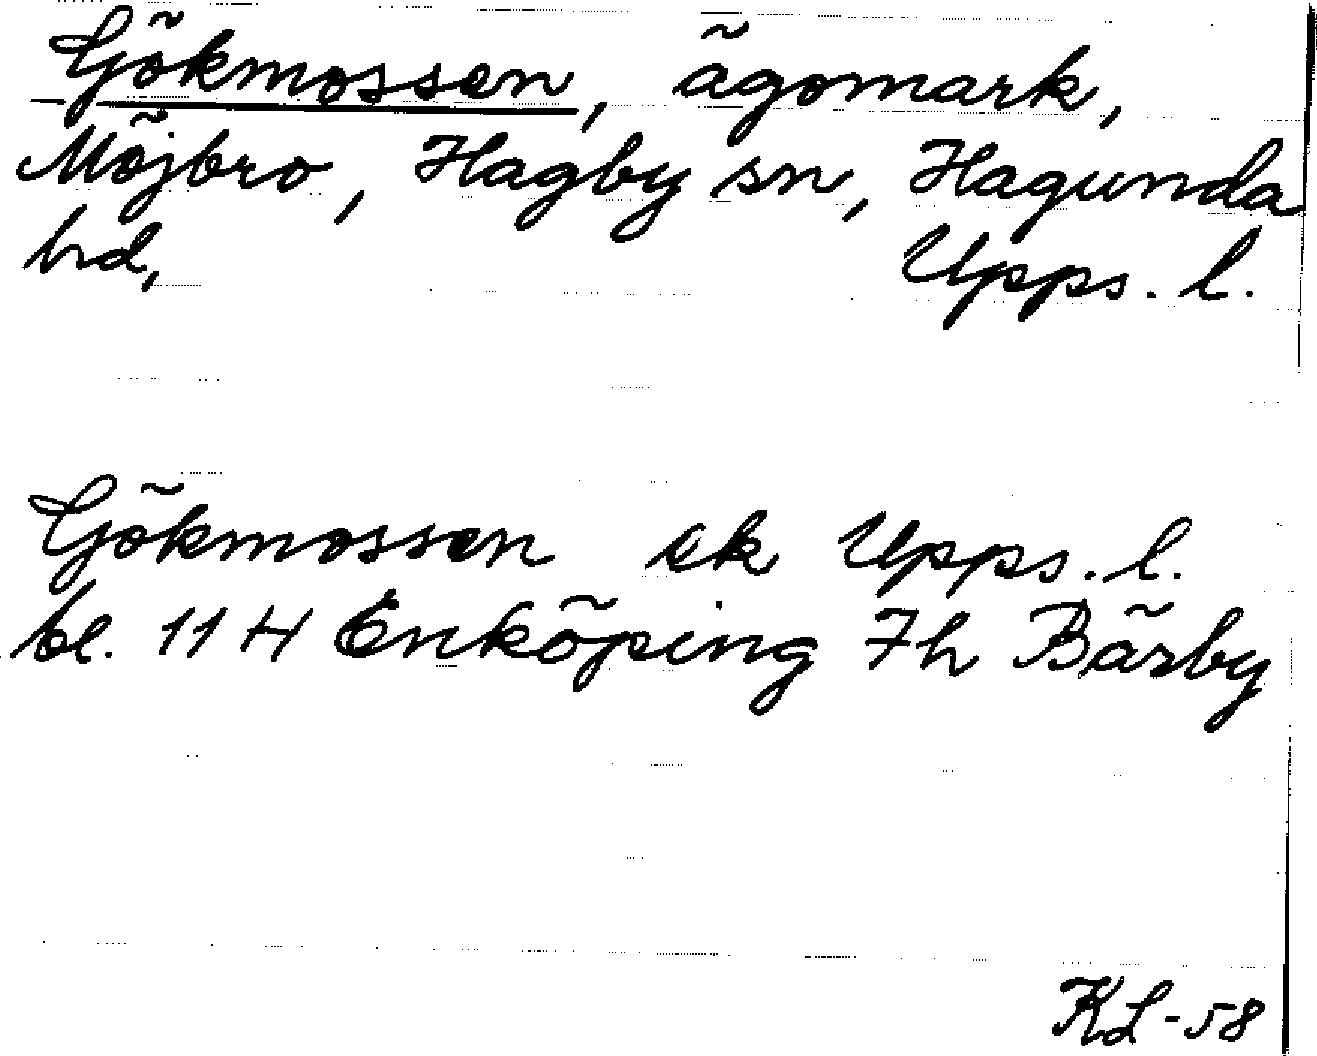 Gökmossen, ägomark,
Möjbro, Hagby sn, Hagunda
hd, Upps. l.
Gökmossen ek Upps. l.
bl. 11 H Enköping 7h Bärby
KL-58